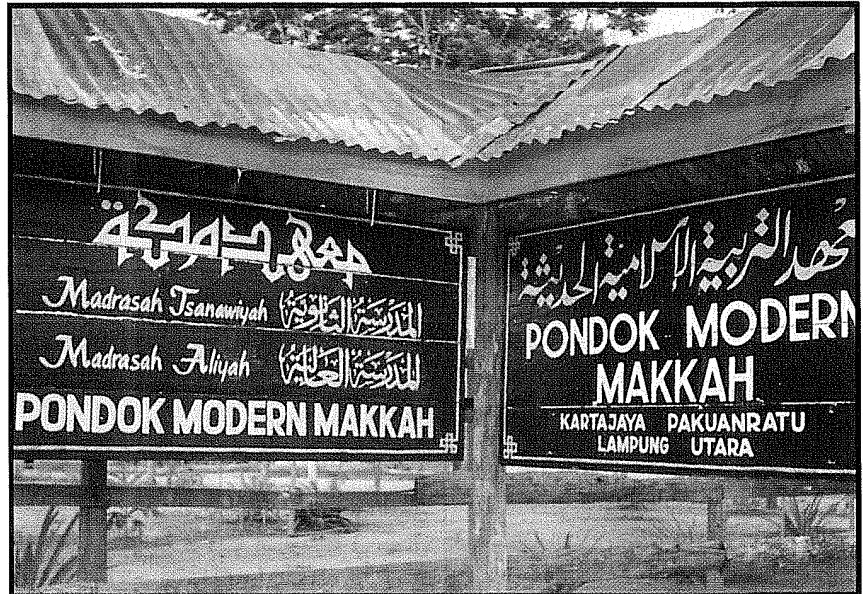 معهد مكة
Madrasah Tsanawiyah المدرسة الثانوية
Madrasah Aliyah المدرسة العالية
PONDOK MODERN MAKKAH
معهد التربية الإسلامية الحديثة
PONDOK MODERN
MAKKAH
KARTAJAYA PAKUANRATU
LAMPUNG UTARA